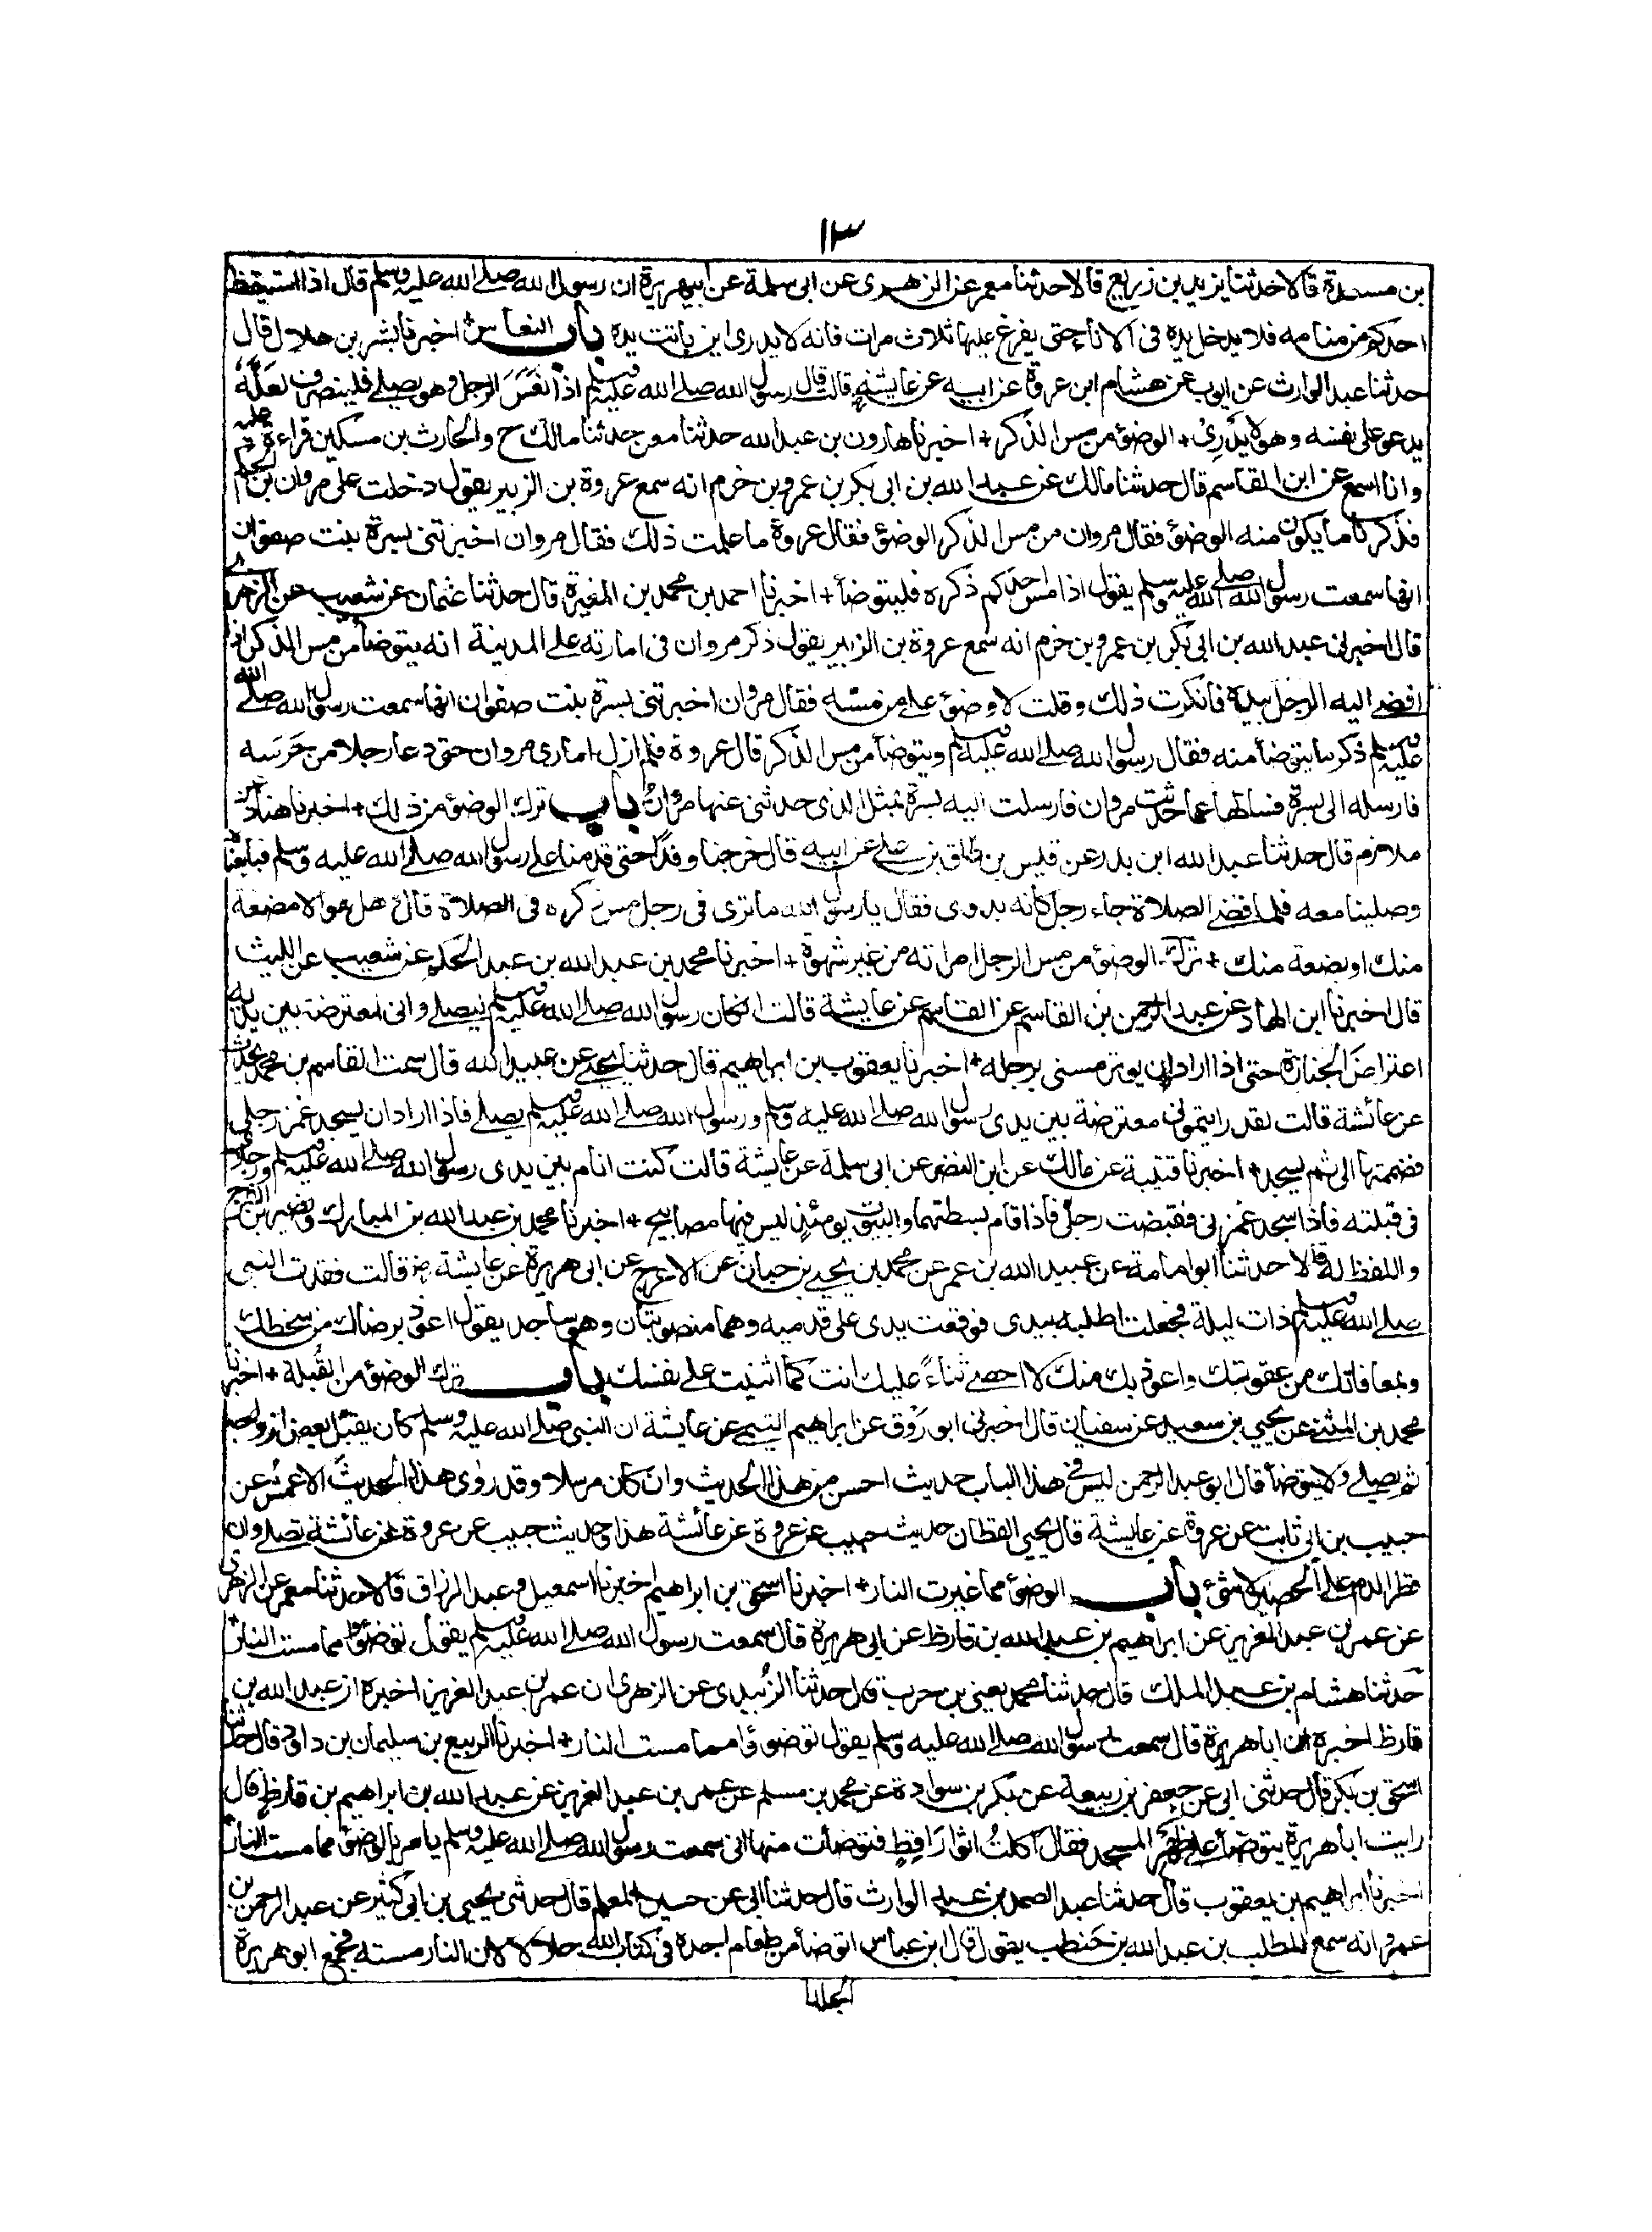 ١٣
بن مسعدة قالا حدثنا يزيد بن زريع قالا حدثنا معمر عن الزهري عن ابى سلمة عن ابيهريرة ان رسول الله صلے الله عليه وسلم قال اذا استيقظ
احدكم من منامه فلا يدخل يده فى الاناء حتى يفرغ عليها ثلاث مرات فانه لا يدرى اين باتت يده باب النعاس اخبرنا بشر بن هلال قال
حدثنا عبد الوارث عن ايوب عن هشام ابن عروة عن ابيه عن عايشة قالت قال رسول الله صلے الله عليه وسلم اذا نعس الرجل وهو يصلے فلينصرف لعله
يدعو على نفسه وهو لا يدرى + الوضوء من مس الذكر + اخبرنا هارون بن عبد الله حدثنا معن حدثنا مالك ح والحارث بن مسكين قراءة عليه
وانا اسمع عن ابن القاسم قال حدثنا مالك عن عبد الله بن ابى بكر بن عمرو بن حزم انه سمع عروة بن الزبير يقول دخلت على مروان بن الحكم
فذكرنا ما يكون منه الوضوء فقال مروان من مس الذكر الوضوء فقال عروة ما علمت ذلك فقال مروان اخبرتنى بسرة بنت صفوان
انها سمعت رسول الله صلے الله عليه وسلم يقول اذا مس احدكم ذكره فليتوضأ + اخبرنا احمد بن محمد بن المغيرة قال حدثنا عثمان عن شعيب عن الزهرى
قال اخبرنى عبد الله بن ابى بكر بن عمرو بن حزم انه سمع عروة بن الزبير يقول ذكر مروان فى امارته على المدينة انه يتوضأ من مس الذكر اذا
افضے اليه الرجل بيده فانكرت ذلك وقلت لا وضوء علے من مسّه فقال مروان اخبرتنى بسرة بنت صفوان انها سمعت رسول الله صلے الله
عليه وسلم ذكر ما يتوضأ منه فقال رسول الله صلے الله عليه وسلم ويتوضأ من مس الذكر قال عروة فلم ازل امارى مروان حتى دعا رجلا من حَرَسه
فارسله الى بسرة فسالها عما حدثت مروان فارسلت اليه بسرة بمثل الذى حدثنى عنها مروان باب ترك الوضوء من ذلك + اخبرنا هناد عن
ملازم قال حدثنا عبد الله ابن بدر عن قيس بن طلق بن علے عن ابيه قال خرجنا وفدًا حتى قدمنا على رسول الله صلے الله عليه وسلم فبايعناه
وصلينا معه فلما قضے الصلاة جاء رجل كانه بدوى فقال يا رسول الله ما ترى فى رجل مس ذكره فى الصلاة قال وهل هو الا مضغة
منك او بضعة منك + ترك الوضوء من مس الرجل امراته من غير شهوة + اخبرنا محمد بن عبد الله بن عبد الحكم عن شعيب عن الليث
قال اخبرنا ابن الهاد عن عبد الرحمن بن القاسم عن القاسم عن عايشة قالت ان كان رسول الله صلے الله عليه وسلم ليصلے وانى لمعترضة بين يديه
اعتراضَ الجنازة حتى اذا اراد ان يوتر مسنى برجله + اخبرنا يعقوب بن ابراهيم قال حدثنا يحيے عن عبيد الله قال سمعت القاسم بن محمد يحدث
عن عائشة قالت لقد رايتمونى معترضة بين يدى رسول الله صلے الله عليه وسلم ورسول الله صلے الله عليه وسلم يصلے فاذا اراد ان يسجد غمز رجلى
فضممتها الى ثم يسجد + اخبرنا قتيبة عن مالك عن ابن النضر عن ابى سلمة عن عايشة قالت كنت انام بين يدى رسول الله صلے الله عليه وسلم ورجلاى
فى قبلته فاذا سجد غمزنى فقبضت رجلى فاذا قام بسطتهما والبيوت يومئذ ليس فيها مصابيح + اخبرنا محمد بن عبد الله بن المبارك ونصير بن الفرج
واللفظ له قالا حدثنا ابو امامة عن عبيد الله بن عمر عن محمد بن يحيے بن حبان عن الاعرج عن ابى هريرة عن عايشة رض قالت فقدت النبى
صلے الله عليه وسلم ذات ليلة فجعلت اطلبه بيدى فوقعت يدى على قدميه وهما منصوبتان وهو ساجد يقول اعوذ برضاك من سخطك
وبمعافاتك من عقوبتك واعوذ بك منك لا احصے ثناءً عليك انت كما اثنيت على نفسك باب ترك الوضوء من القُبلة + اخبرنا
محمد بن المثنے عن يحيى بن سعيد عن سفيان قال اخبرنى ابو رَوْق عن ابراهيم التيمے عن عايشة ان النبى صلے الله عليه وسلم كان يقبّل بعض ازواجه
ثم يصلے ولا يتوضأ قال ابو عبد الرحمن ليس فى هذا الباب حديث احسن من هذا الحديث وان كان مرسلا وقد روى هذا الحديث الاعمش عن
حبيب بن ابى ثابت عن عروة عن عايشة قال يحيى القطان حديث حبيب عن عروة عن عائشة هذا وحديث حبيب عن عروة عن عائشة تصلے وان
قطر الدم على الحصير لا شئ باب الوضوء مما غيرت النار + اخبرنا اسحق بن ابراهيم اخبرنا اسمعيل وعبد الرزاق قالا حدثنا معمر عن الزهرى
عن عمر بن عبد العزيز عن ابراهيم بن عبد الله بن قارظ عن ابى هريرة قال سمعت رسول الله صلے الله عليه وسلم يقول توضؤا مما مست النار +
حدثنا هشام بن عبد الملك قال حدثنا محمد يعنى بن حرب قال حدثنا الزُبيدى عن الزهرى ان عمر بن عبد العزيز اخبره ان عبد الله بن
قارظ اخبره ان ابا هريرة قال سمعت رسول الله صلے الله عليه وسلم يقول توضوؤا مما مست النار + اخبرنا الربيع بن سليمان بن داود قال حدثنا
اسحق بن بكر قال حدثنى ابى عن جعفر بن ربيعة عن بكر بن سوادة عن محمد بن مسلم عن عمر بن عبد العزيز عن عبد الله بن ابراهيم بن قارظ قال
رايت ابا هريرة يتوضأ على ظهر المسجد فقال اكلتُ اثوارَ اقِطٍ فتوضأت منها انى سمعت رسول الله صلے الله عليه وسلم يامر بالوضوء مما مست النار +
اخبرنا ابراهيم بن يعقوب قال حدثنا عبد الصمد بن عبد الوارث قال حدثنا ابى عن حسين المعلم قال حدثنى يحيى بن ابى كثير عن عبد الرحمن بن
عمرو انه سمع المطلب بن عبد الله بن حَنطب يقول قال ابن عباس اتوضأ من طعام اجده فى كتاب الله حلالا لان النار مسته فجمع ابو هريرة